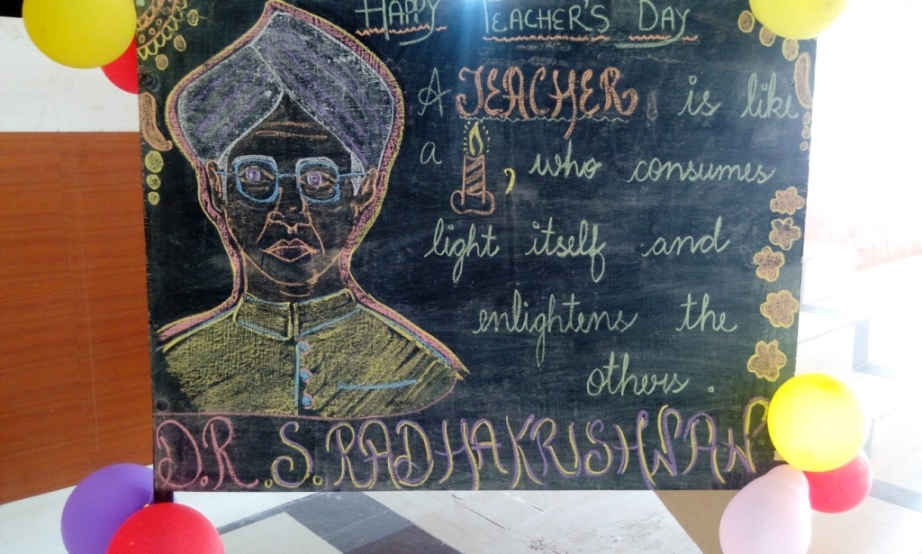 HAPPY TEACHER'S DAY
A TEACHER is like
a , who consumes
light itself and
enlightens the
others.
D.R. S. RADHAKRISHNAN